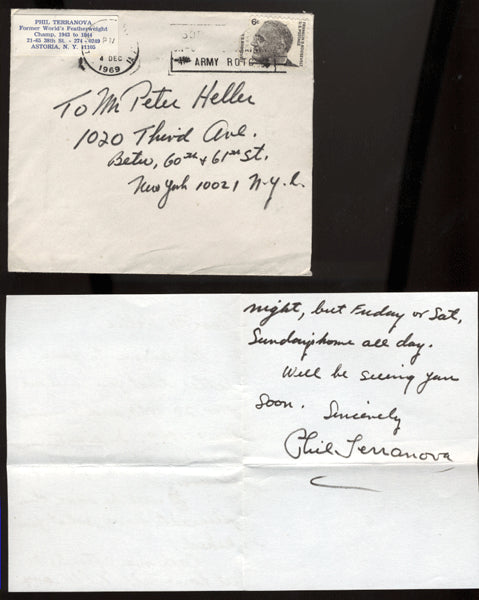 PHIL TERRANOVA
Former World's Featherweight
Champ, 1943 to 1944
21-65 28th St. - 274 - 0749
ASTORIA, N. Y. 11105
4 DEC
1969
ARMY ROTC
6¢
To Mr Peter Heller
1020 Third Ave.
Betw, 60th & 61st St.
New York 10021 N.Y.C.
night, but Friday or Sat,
Sunday home all day.
Will be seeing you
soon. Sincerely
Phil Terranova